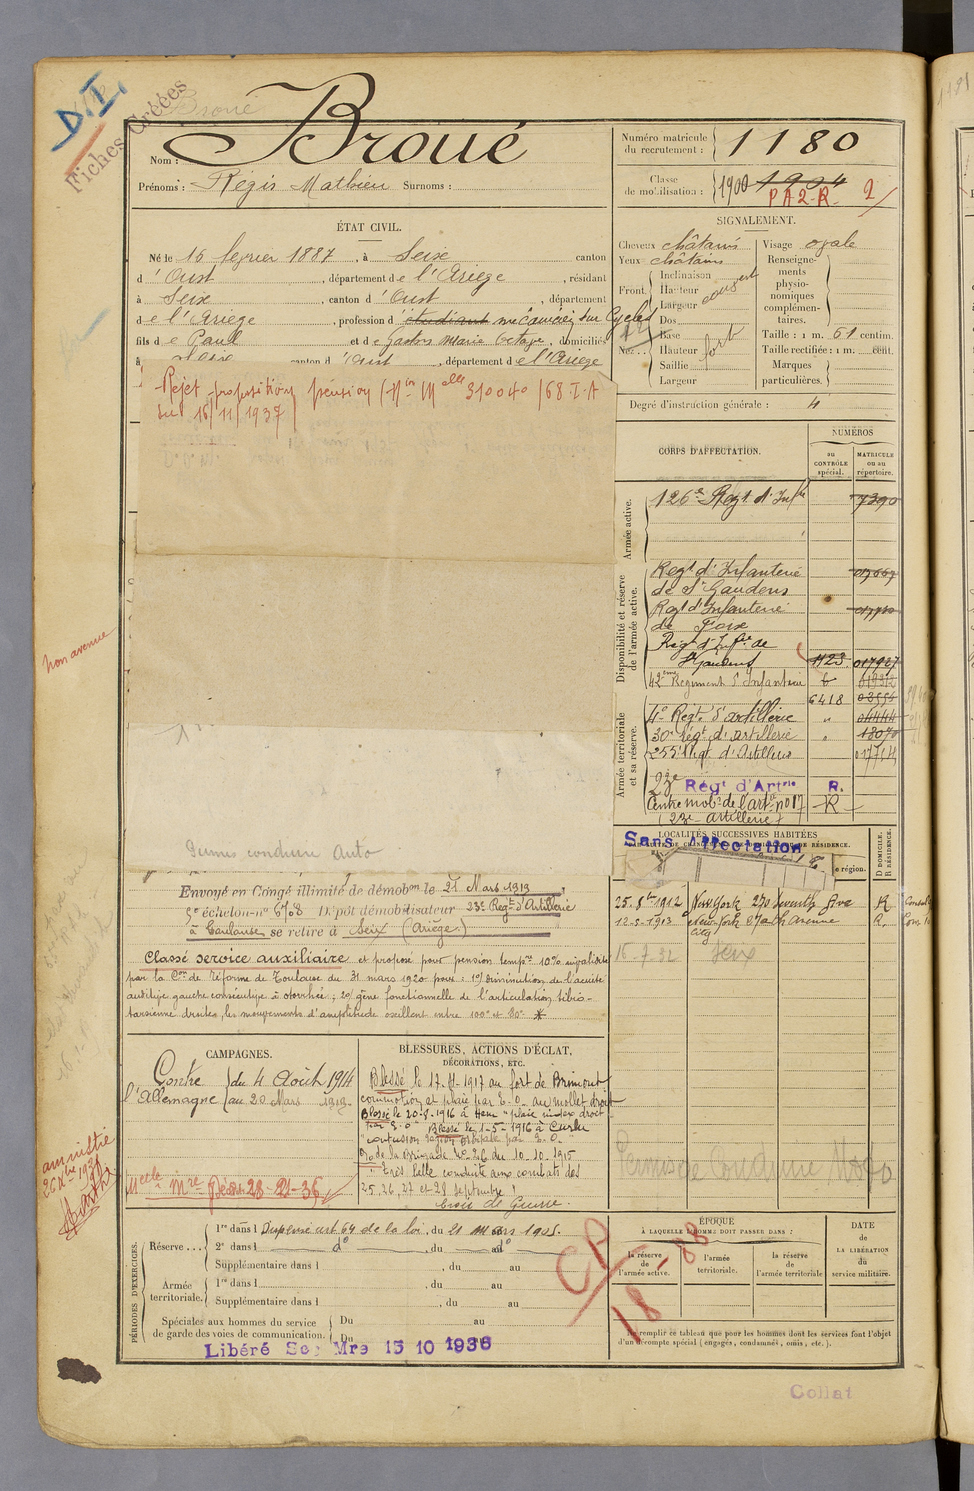 D.I.
Fiches Créées
Broué
Nom : Broué
Prénoms : Régis Mathieu Surnoms :
Numéro matricule du recrutement : 1180
Classe de mobilisation : 1900 1904
PA2-R 2
ÉTAT CIVIL.
Né le 15 février 1887, à Seix canton
d'Oust, département de l'Ariège, résidant
à Seix, canton d'Oust, département
de l'Ariège, profession d'étudiant mécanicien sur Cycles
fils de Paul et de Gaston Marie Octavie, domiciliés
à Seix canton d'Oust, département de l'Ariège
SIGNALEMENT.
Cheveux châtains
Yeux châtains
Front. Inclinaison
Hauteur
Largeur
Nez.. Dos
Base
Hauteur
Saillie
Largeur
fort
Visage ovale
Renseignements physionomiques complémentaires.
Taille : 1 m. 61 centim.
Taille rectifiée : 1 m. cent.
Marques particulières.
Degré d'instruction générale : 4
Rejet proposition pension (Min Melle 310040 /68.I.A
du 16/11/1937)
CORPS D'AFFECTATION.
NUMÉROS
au CONTRÔLE spécial.
MATRICULE ou au répertoire.
Armée active.
126e Regt d'Infie 7390
Disponibilité et réserve de l'armée active.
Regt d'Infanterie
de St Gaudens
Regt d'Infanterie
de Foix
Regt d'Infie de
St Gaudens 1123 017927
42ème Régiment d'Infanterie
Armée territoriale et sa réserve.
6418
4e Régt d'artillerie 04444
30e régt d'artillerie 18070
255e Regt d'Artillerie
23e Régt d'Artrie R.
Centre mobre de l'artie no 17 R
(23e artillerie)
non avenue
Permis conduire Auto
Sans Affectation
LOCALITÉS SUCCESSIVES HABITÉES
D DOMICILE. R RÉSIDENCE.
25.8bre 1912 New York 270 Seventh Ave R
12-5-1913 New-York 27ath avenue R.
City
15-7-32 Seix
Envoyé en Congé illimité de démobon le 21 Mars 1919
5e échelon no 6708 Dépôt démobilisateur 23e Regt d'Artillerie
à Toulouse se retire à Seix (Ariège)
Classé service auxiliaire et proposé pour pension tempre 10% invalidité
par la Con de Réforme de Toulouse du 31 mars 1920 pour : 1o/ diminution de l'acuité
auditive gauche consécutive à otorrhée ; 2o/ gêne fonctionnelle de l'articulation tibio-
tarsienne droite, les mouvements d'amplitude oscillent entre 100o et 80o *
CAMPAGNES.
Contre du 4 Août 1914
l'Allemagne au 20 Mars 1919
BLESSURES, ACTIONS D'ÉCLAT,
DÉCORATIONS, ETC.
Blessé le 17-4-1917 au fort de Brimont
commotion et plaie par E.O. au mollet droit
Blessé le 20-8-1916 à Hem "plaie index droit
par E.O" Blessé le 1-5-1916 à Curlu
"contusion région par E.O."
O/ de la Brigade No 26 du 10-10-1915
"Très belle conduite aux combats des
25, 26, 27 et 28 septembre"
Croix de Guerre.
amnistie
Permis de Conduire Moto
PÉRIODES D'EXERCICES.
Réserve... 1re dans l Dispensé art 64 de la loi, du 21 Mars 1905.
2e dans l do, du au do
Supplémentaire dans l , du au
Armée territoriale. 1re dans l , du au
Supplémentaire dans l , du au
Spéciales aux hommes du service de garde des voies de communication. Du au
Du
Libéré Sce Mre 15 10 1936
CP
18
88
ÉPOQUE
À LAQUELLE L'HOMME DOIT PASSER DANS :
la réserve de l'armée active.
l'armée territoriale.
la réserve de l'armée territoriale
DATE DE LA LIBÉRATION du service militaire.
Ne remplir ce tableau que pour les hommes dont les services font l'objet
d'un décompte spécial (engagés, condamnés, omis, etc.).
Collat